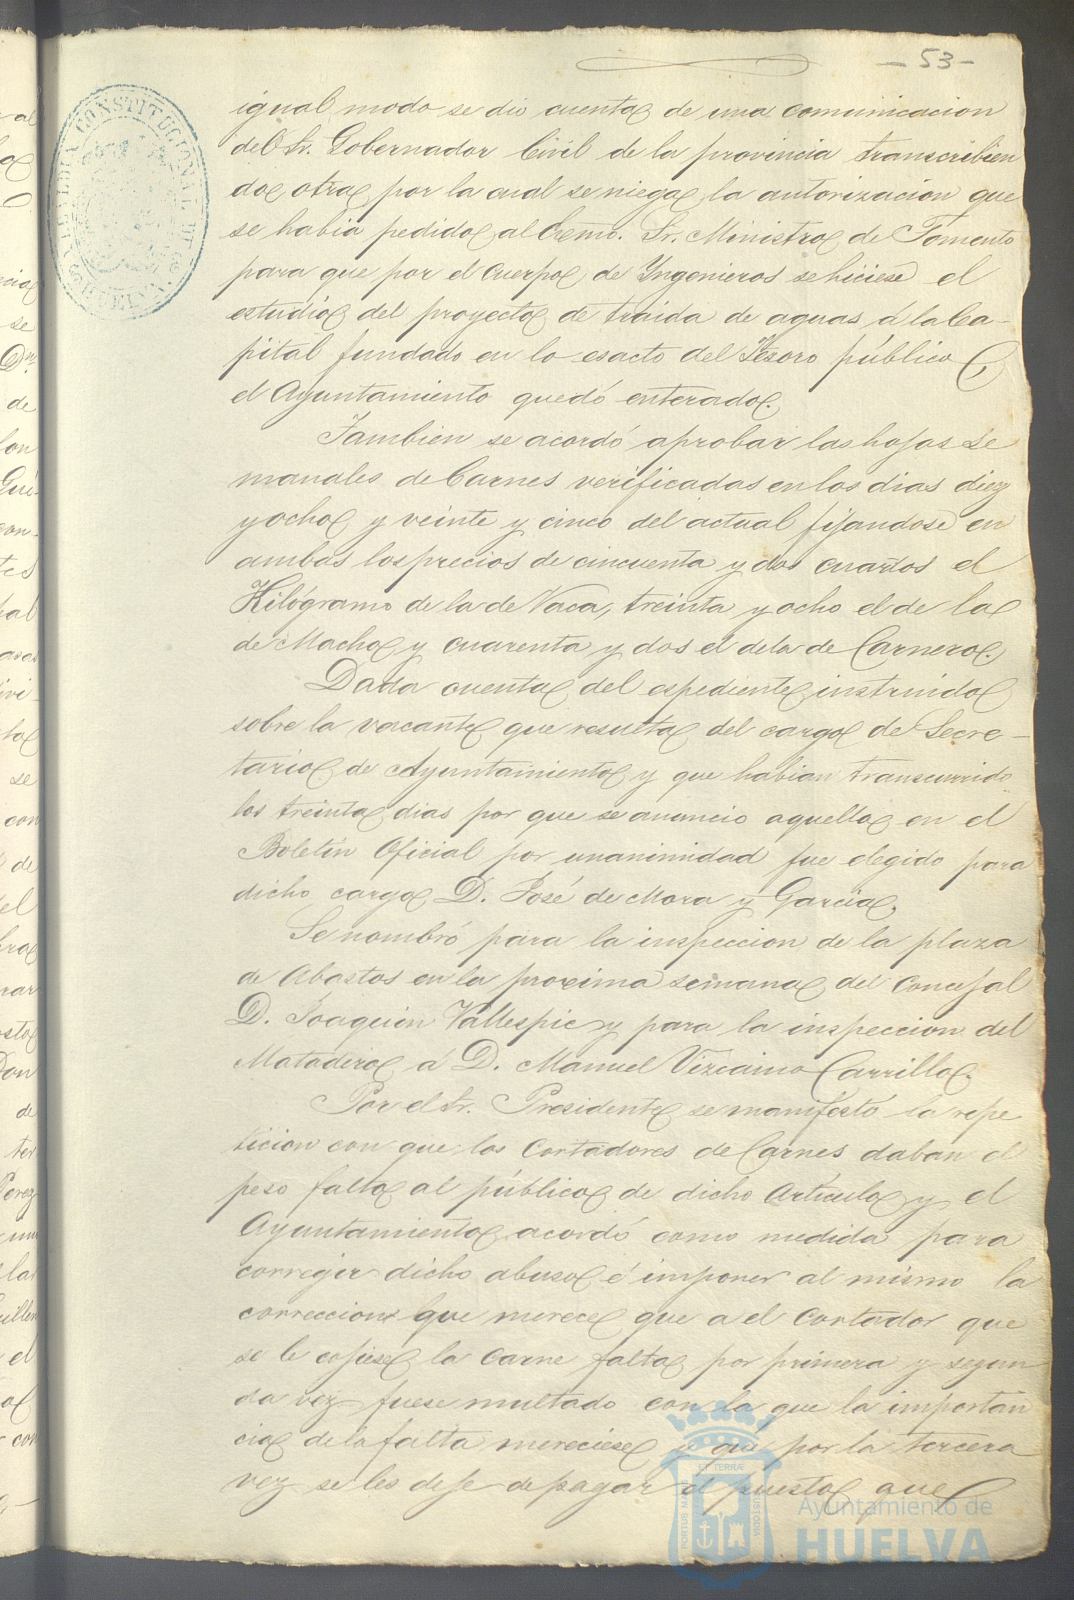 — 53 —
igual modo se dio cuenta de una comunicacion
del Sr. Gobernador Civil de la provincia transcribien
do otra por la cual se niega la autorizacion que
se habia pedido al Ecsmo. Sr. Ministro de Fomento
para que por el Cuerpo de Yngenieros se hiciese el
estudio del proyecto de traida de aguas á la Ca-
pital fundado en lo esacto del Tesoro público
el Ayuntamiento quedó enterado.
Tambien se acordó aprobar las hojas se
manales de Carnes verificadas en los dias diez
y ocho y veinte y cinco del actual fijandose en
ambas los precios de cincuenta y dos cuartos el
Kilógramo de la de Vaca, treinta y ocho el de la
de Macho y cuarenta y dos el de la de Carnero.
Dada cuenta del espediente instruido
sobre la vacante que resulta del cargo de Secre-
tario de Ayuntamiento y que habian transcurrido
los treinta dias por que se anuncio aquella en el
Boletin Oficial por unanimidad fue elegido para
dicho cargo D. José de Mora y Garcia.
Se nombró para la inspeccion de la plaza
de Abastos en la procsima semana del Concejal
D. Joaquin Vallespic y para la inspeccion del
Matadero á D. Manuel Vizcaino Carrillo.
Por el Sr. Presidente se manifestó la repe
ticion con que los Cortadores de Carnes daban el
peso falto al público de dicho Articulo y el
Ayuntamiento acordó como medida para
corregir dicho abuso é imponer al mismo la
correccion que merece que a el Cortador que
se le cojiese la Carne falta por primera y segun
da vez fuese multado con la que la importan
cia de la falta mereciese y que por la tercera
vez se les deje de pagar el puesto que
Ayuntamiento de
HUELVA